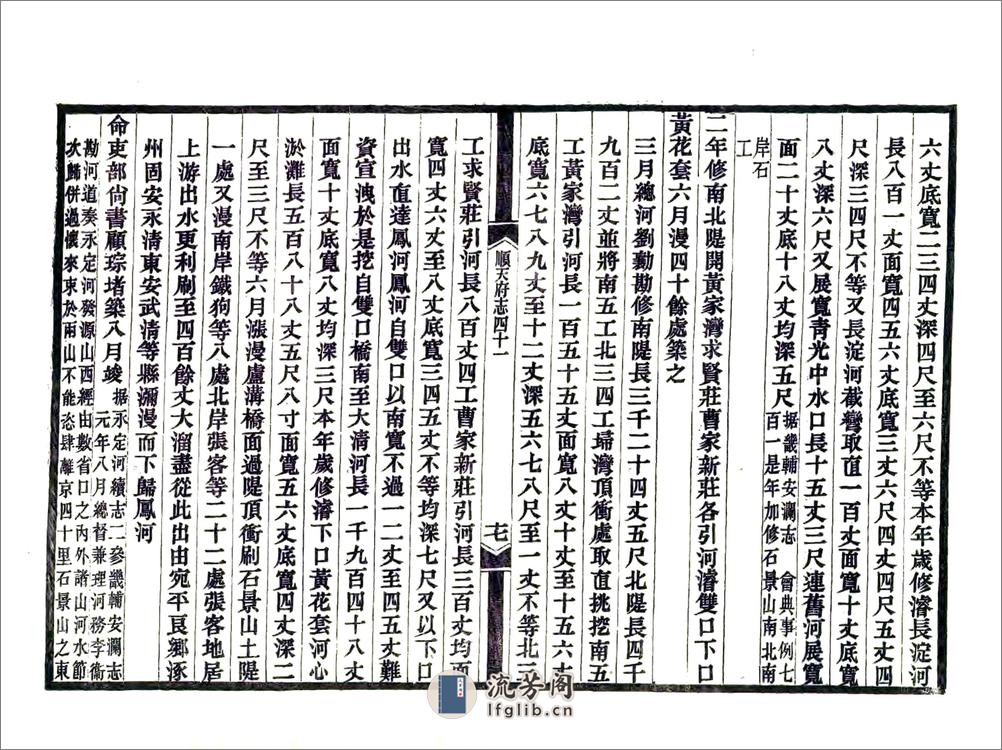 六丈底寬二三四丈深四尺至六尺不等本年歲修濬長淀河
長八百一丈面寬四五六丈底寬三丈六尺四丈四尺五丈四
尺深三四尺不等又長淀河截彎取直一百丈面寬十丈底寬
八丈深六尺又展寬青光中水口長十五丈三尺連舊河展寬
面二十丈底十八丈均深五尺據畿輔安瀾志 會典事例七
百一是年加修石景山南北南
岸石
工
二年修南北隄開黃家灣求賢莊曹家新莊各引河濬雙口下口
黃花套六月漫四十餘處築之
三月總河劉勷勘修南隄長三千二十四丈五尺北隄長四千
九百二丈並將南五工北三四工埽灣頂衝處取直挑挖南五
工黃家灣引河長一百五十五丈面寬八丈十丈至十五六丈
底寬六七八九丈至十二丈深五六七八尺至一丈不等北三
順天府志四十一
十七
工求賢莊引河長八百丈四工曹家新莊引河長三百丈均面
寬四丈六丈至八丈底寬三四五丈不等均深七尺又以下口
出水直達鳳河鳳河自雙口以南寬不過一二丈至四五丈難
資宣洩於是挖自雙口橋南至大清河長一千九百四十八丈
面寬十丈底寬八丈均深三尺本年歲修濬下口黃花套河心
淤灘長五百八十八丈五尺八寸面寬五六丈底寬四丈深二
尺至三尺不等六月漲漫盧溝橋面過隄頂衝刷石景山土隄
一處又漫南岸鐵狗等八處北岸張客等二十二處張客地居
上游出水更利刷至四百餘丈大溜盡從此出由宛平良鄉涿
州固安永清東安武清等縣瀰漫而下歸鳳河
命吏部尚書顧琮堵築八月竣據永定河續志二參畿輔安瀾志
元年八月總督兼理河務李衛
勘河道奏永定河發源山西經由數省口之內外諸山河水節
次歸併過懷來束於兩山不能恣肆離京四十里石景山之東
流芳閣
lfglib.cn